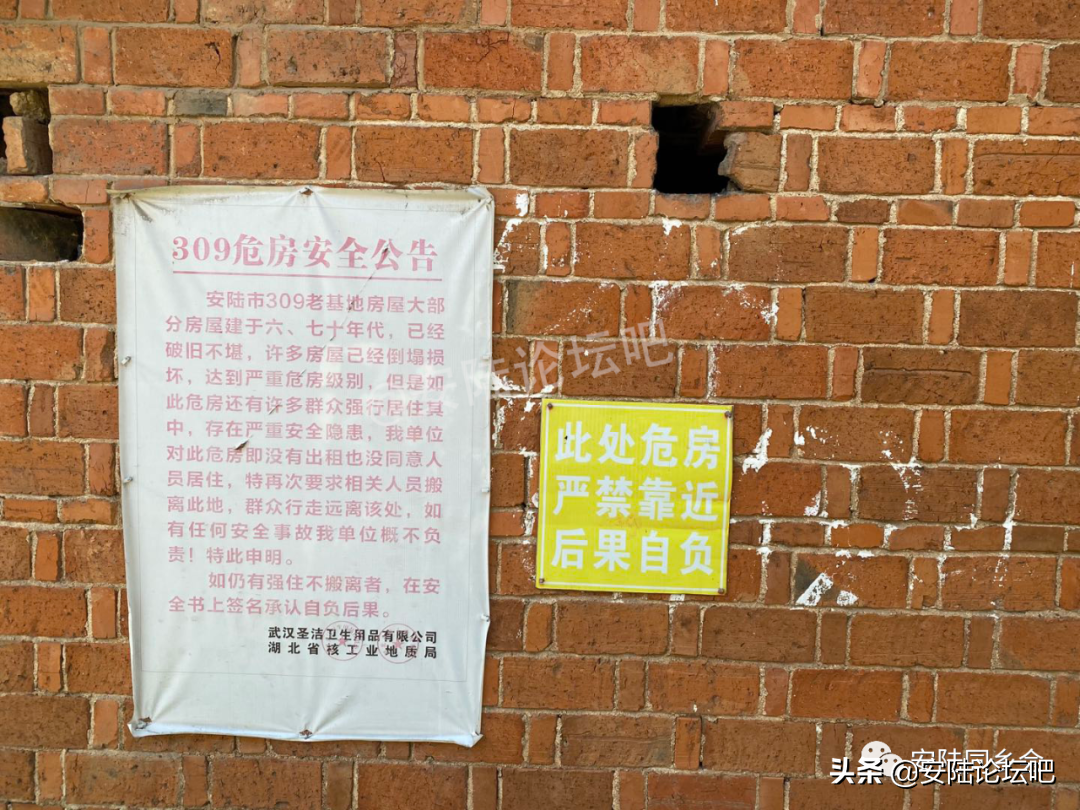 309危房安全公告
安陆市309老基地房屋大部
分房屋建于六、七十年代，已经
破旧不堪，许多房屋已经倒塌损
坏，达到严重危房级别，但是如
此危房还有许多群众强行居住其
中，存在严重安全隐患，我单位
对此危房即没有出租也没同意人
员居住，特再次要求相关人员搬
离此地，群众行走远离该处，如
有任何安全事故我单位概不负
责！特此申明。
如仍有强住不搬离者，在安
全书上签名承认自负后果。
武汉圣洁卫生用品有限公司
湖北省核工业地质局
此处危房
严禁靠近
后果自负
安陆论坛吧
安陆同乡会
头条@安陆论坛吧